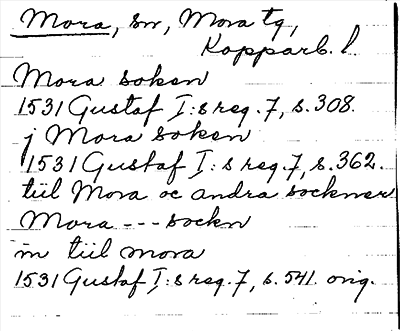 Mora, sn, Mora tg,
Kopparb. l.
Mora soken
1531 Gustaf I:s reg. 7, s. 308.
j Mora soken
1531 Gustaf I:s reg. 7, s. 362.
tiil Mora oc andra sockner
Mora --- sockn
in tiil mora
1531 Gustaf I:s reg. 7, s. 541. orig.